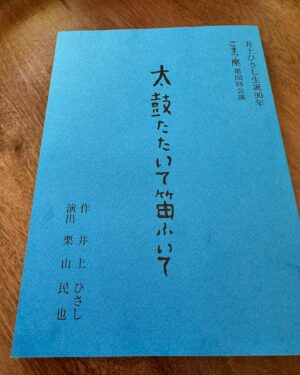 井上ひさし生誕90年
こまつ座 第152回公演
太鼓たたいて笛ふいて
作 井上ひさし
演出 栗山民也